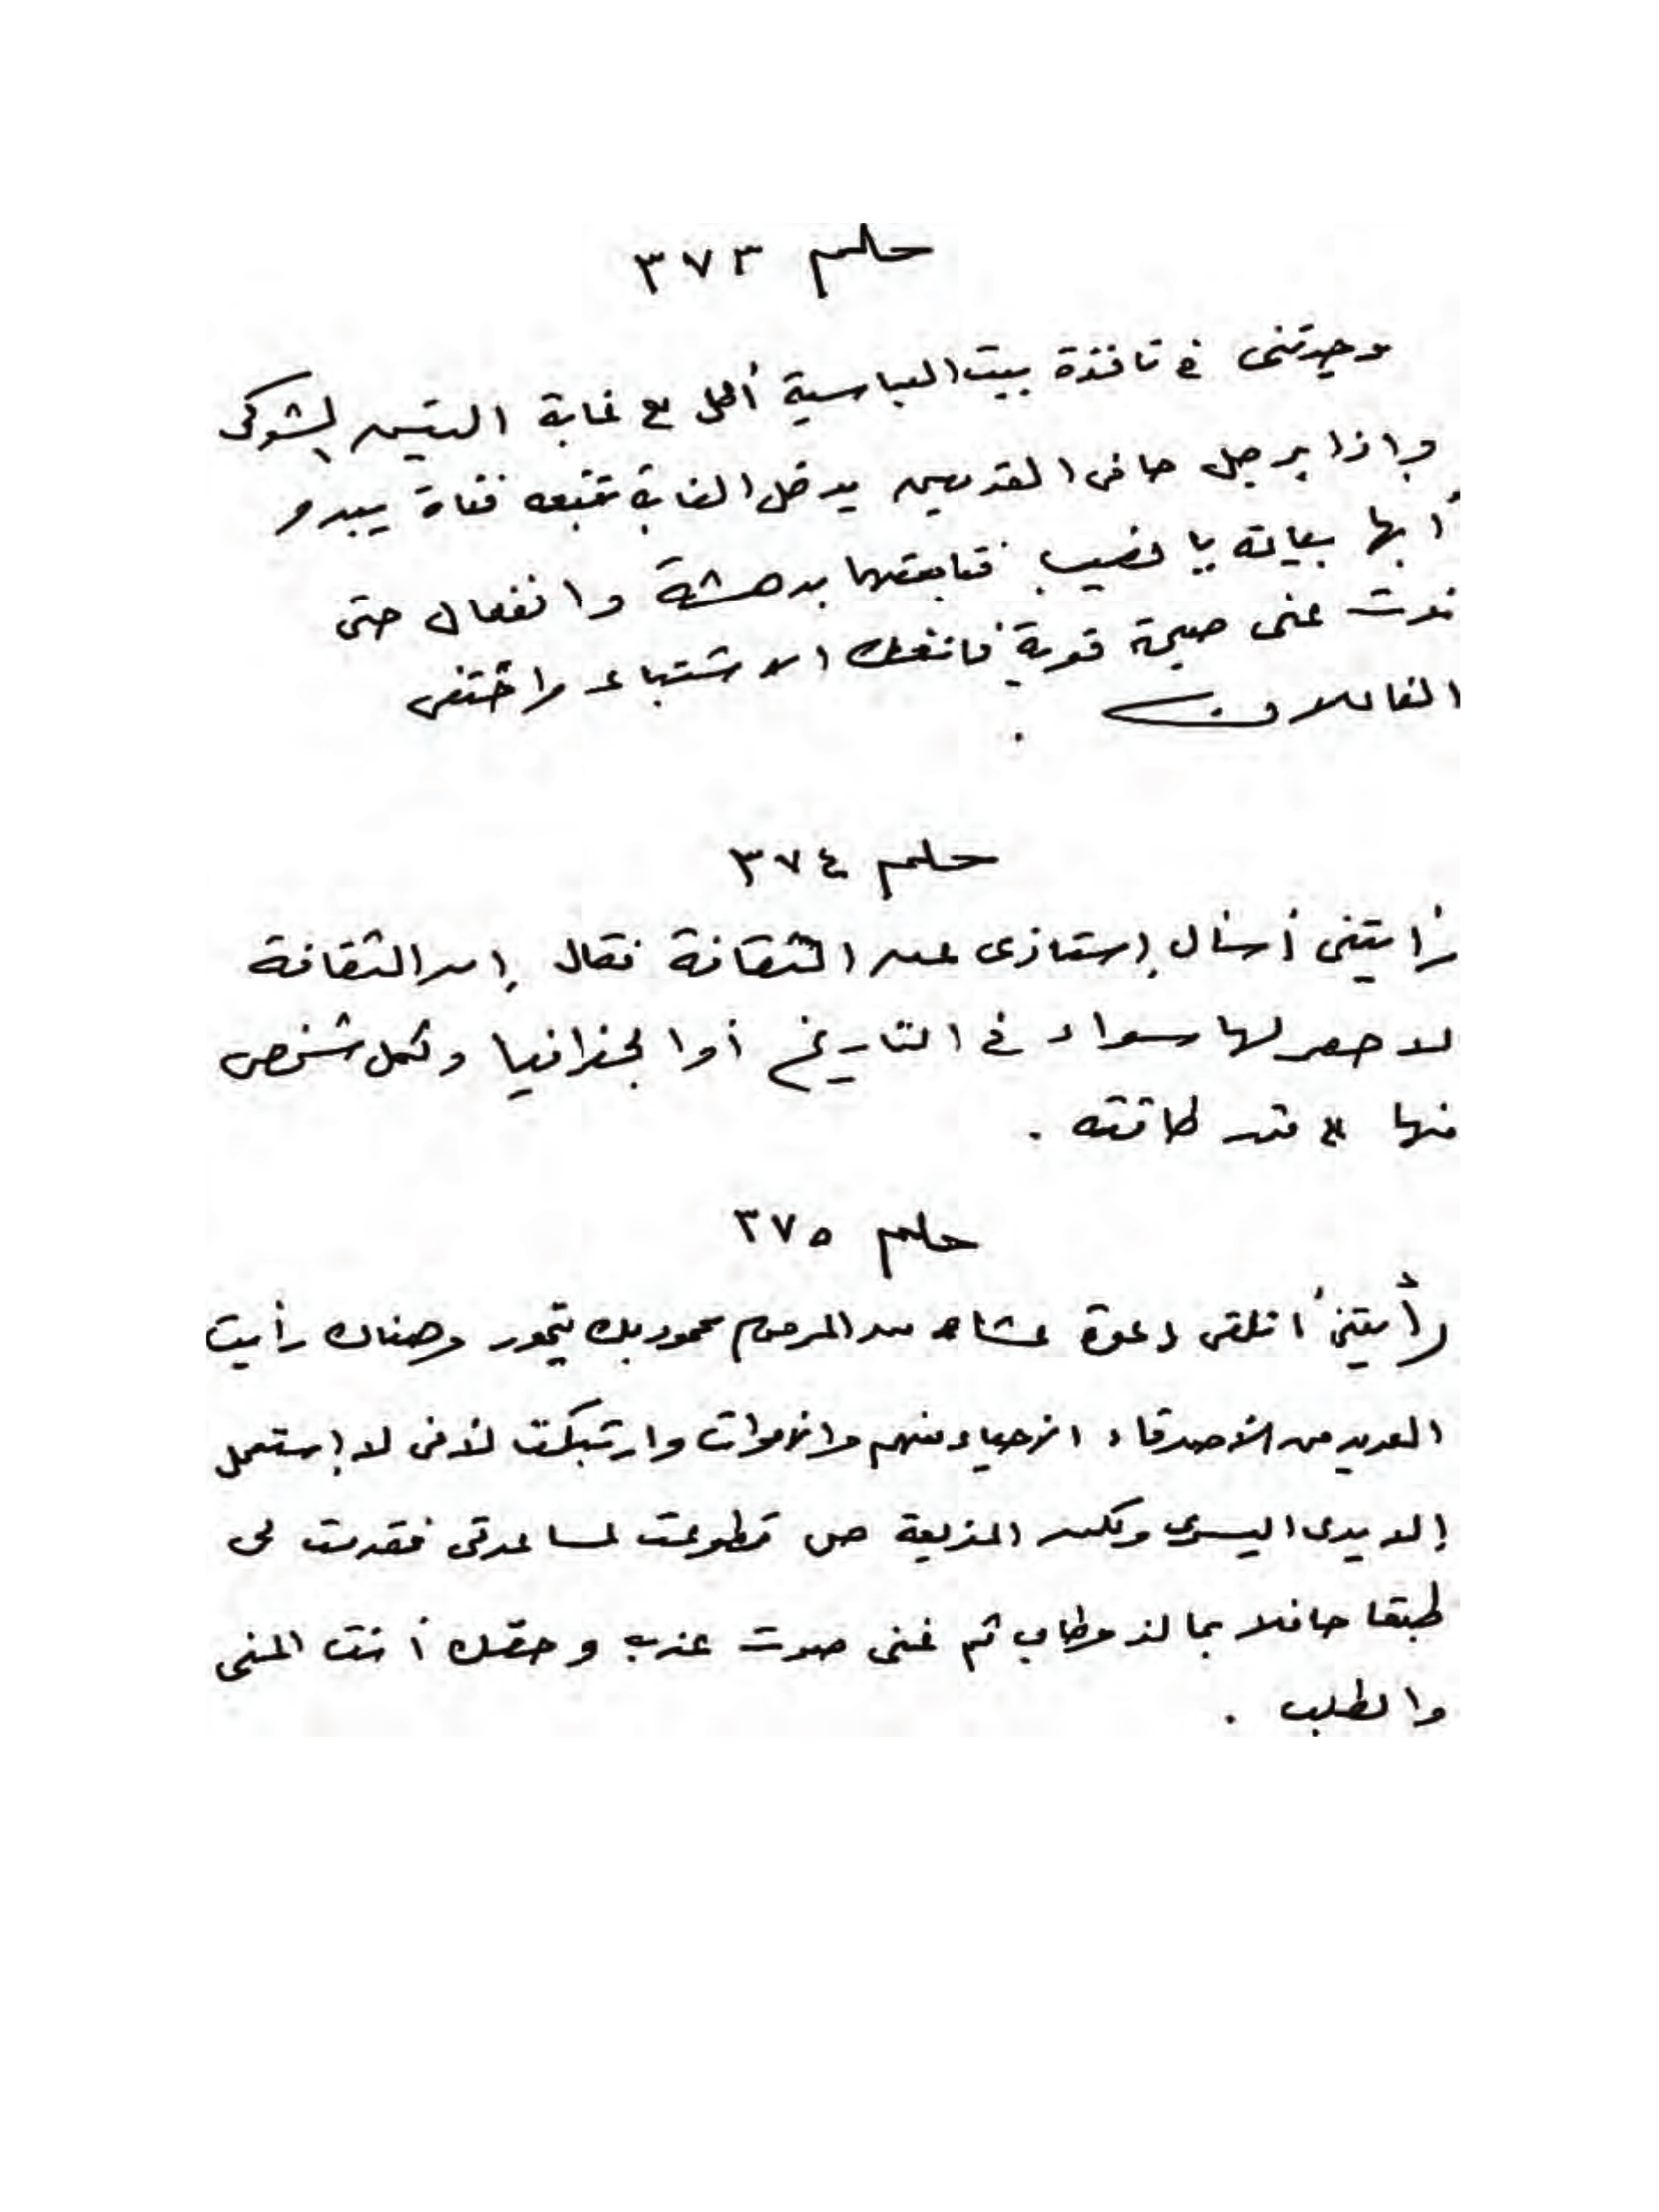 حلم ٣٧٣
وجدتنى فى نافذة بيت العباسية أطل على غابة التين الشوكى
وإذا برجل حافى القدمين يدخل الغابة تتبعه فتاة يبدو
أنها بياعة يا نصيب فتابعتهما بدهشة وانفعال حتى
ندت عنى صيحة قوية فانفك الاشتباك واختفى
الفاعلان .
حلم ٣٧٤
رأيتنى أسأل إستاذى عن الثقافة فقال إن الثقافة
لا حصر لها سواء فى التاريخ أو الجغرافيا ولكل شخص
منها على قدر طاقته .
حلم ٣٧٥
رأيتنى أتلقى دعوة عشاء من المرحوم محمود بك تيمور وهناك رأيت
العديد من الأصدقاء الأحياء منهم والأموات وارتبكت لأنى لا إستعمل
إلا يدى اليسرى ولكن المذيعة تطوعت لمساعدتى فقدمت لى
طبقا حافلا بما لذ وطاب ثم غنى صوت عذب وحقك أنت المنى
والطلب .